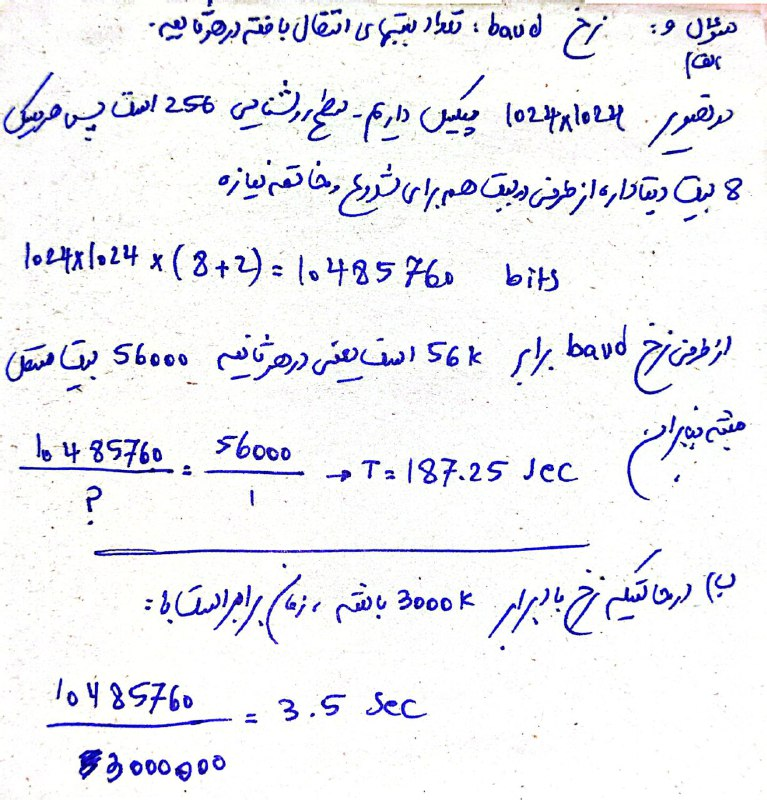 سوال و: نرخ baud: تعداد بیتهای انتقال یافته در هر ثانیه.
الف)
در تصویر 1024x1024 پیکسل داریم - سطح روشنایی 256 است پس هر پیکسل
8 بیت دیتا داره از طرفی دو بیت هم برای شروع و خاتمه نیازه
1024x1024 x (8+2) = 10485760 bits
از طرفی نرخ baud برابر 56k است یعنی در هر ثانیه 56000 بیت منتقل
میشه بنابراین
10485760 / ? = 56000 / 1 → T = 187.25 sec
ب) در حالتیکه نرخ باد برابر 3000k باشه ، زمان برابر است با:
10485760 / 3000000 = 3.5 sec